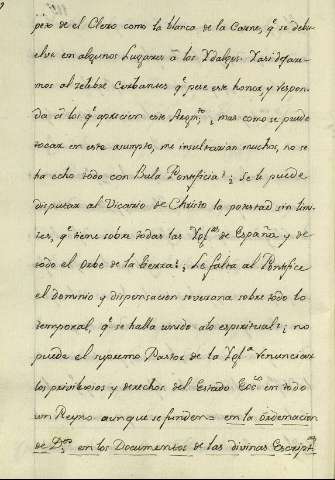 pezo de el Clero como la blanca de la Carne, q.e se debu
elve en algunos Lugares â los Ydalgos: Vasi dejare
mos al zelebre Cerbantes q.e pese este honor y respon
da â los q.e aprecien este Argm.to, mas como se puede
tocar en este asumpto, me insultarian muchos, no se
ha echo todo con Bula Pontificia? ¿ Se le puede
disputar al Vicario de Christo la potestad sin limi
tes, q.e tiene sobre todas las Ygl.as de España y de
todo el Orbe de la tierra? ¿ Le falta al Pontifice
el dominio y dispensacion soverana sobre todo lo
temporal, q.e se halla unido alo espiritual? ¿ no
puede el supremo Pastor de la Ygl.a renunciar
los privilexios y derechos del Estado Ecc.co en todo
un Reyno aunque se funden en la ordenacion
de D.s en los Documentos de las divinas Escript.as